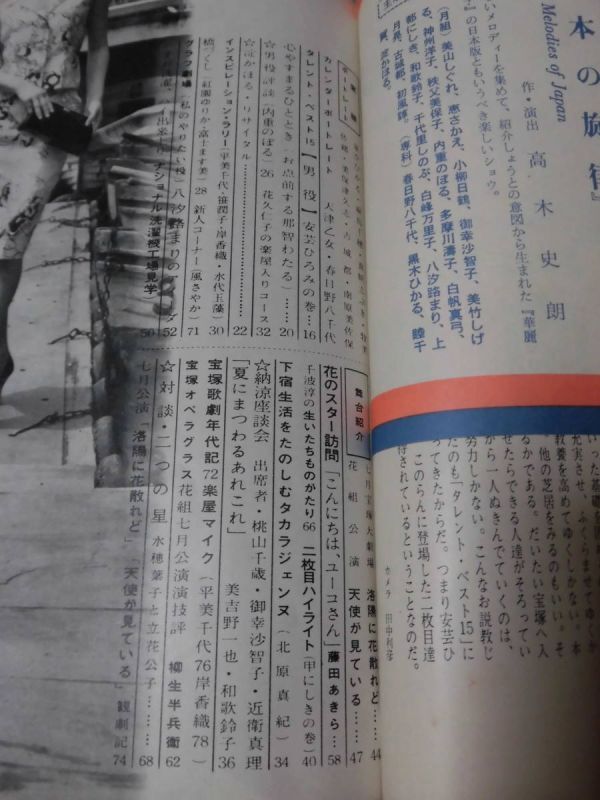 本の旋律』
Melodies of Japan
作・演出 高木史朗
いメロディーを集めて、紹介しようとの意図から生まれた『華麗
』の日本版ともいうべき楽しいショウ。
(月組) 美山しぐれ、恵さかえ、小柳日鶴、御幸沙智子、美竹しげ
る、神州洋子、秩父美保子、内重のぼる、多摩川濤子、白帆真弓、
都にしき、和歌鈴子、千代里しのぶ、白峰万里子、八汐路まり、上
月晃、古城都、初風諄。(専科) 春日野八千代、黒木ひかる、睦千
賀、淀かほる。
った基礎を
充実させ、ふくらませてゆく
教養を高めてゆくしかない。本
、他の芝居をみるのもいい。そ
るかである。だいたい宝塚へ入
せたらできる人達がそろってい
から一人ぬきんでていくのは、
努力しかない。こんなお説教じ
たのも「タレント・ベスト15」に
ってきたからだ。つまり安芸ひ
このらんに登場した二枚目達
待されているということなのだ。
カメラ 田中利彦
ポートレート
カレンダーポートレート 天津乙女・春日野八千代
タレント・ベスト15【男役】安芸ひろみの巻……16
心やすまるひととき(お点前する那智わたる)……20
☆男役評談(内重のぼる) 26 花久仁子の楽屋入りコース 32
☆淀かほる・リサイタル……22
インスピレーション・ラリー(平美千代・笹潤子・岸香織・水代玉藻) 30
橋づくし(紅園ゆりか・富士ます美) 28 新人コーナー(風さやか) 71
グラフ劇場(私のやりたい役)八汐路まりのアイーダ 52
ナショナル洗濯機工場見学) 50
舞台紹介
七月宝塚大劇場 洛陽に花散れど……44
花組公演 天使が見ている……47
花のスター訪問「こんにちは、ユーコさん」藤田あきら……58
千波淳の生いたちものがたり 66 二枚目ハイライト(甲にしきの巻) 40
下宿生活をたのしむタカラジェンヌ(北原真紀) 34
☆納涼座談会 出席者・桃山千歳・御幸沙智子・近衛真理
「夏にまつわるあれこれ」 美吉野一也・和歌鈴子 36
宝塚歌劇年代記 72 楽屋マイク(平美千代 76 岸香織 78)
宝塚オペラグラス花組七月公演演技評 柳生半兵衛 62
☆対談・二つの星 水穂葉子と立花公子……68
七月公演「洛陽に花散れど」「天使が見ている」観劇記 74